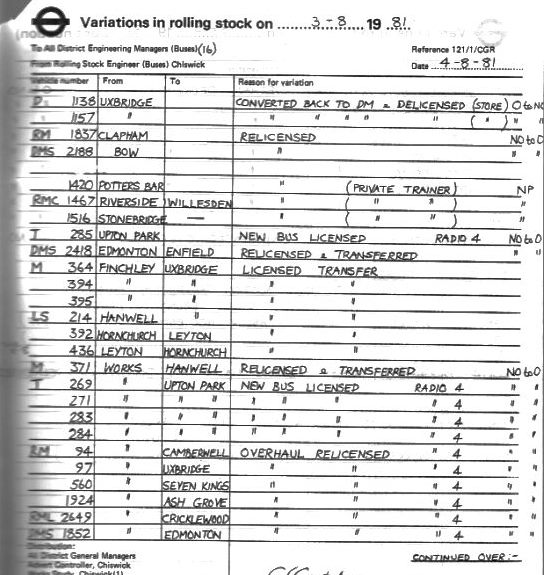 Variations in rolling stock on 3-8 19 81
To All District Engineering Managers (Buses) (16) Reference 121/1/CGR
From Rolling Stock Engineer (Buses) Chiswick Date 4-8-81
Vehicle number From To Reason for variation
D 1138 UXBRIDGE CONVERTED BACK TO DM & DELICENSED (STORE) O to NO
1157 " " " " " ( " ) " "
RM 1837 CLAPHAM RELICENSED NO to O
DMS 2188 BOW " " "
1420 POTTERS BAR " (PRIVATE TRAINER) NP
RMC 1467 RIVERSIDE WILLESDEN " ( " " ) "
1516 STONEBRIDGE — " ( " " ) "
T 285 UPTON PARK NEW BUS LICENSED RADIO 4 NO to O
DMS 2418 EDMONTON ENFIELD RELICENSED & TRANSFERRED " "
M 364 FINCHLEY UXBRIDGE LICENSED TRANSFER
394 " " " "
395 " " " "
LS 214 HANWELL " " "
392 HORNCHURCH LEYTON " "
436 LEYTON HORNCHURCH " "
M 371 WORKS HANWELL RELICENSED & TRANSFERRED NO to O
T 269 " UPTON PARK NEW BUS LICENSED RADIO 4 " "
271 " " " " " " " 4 " "
283 " " " " " " " 4 " "
284 " " " " " " " 4 " "
RM 94 " CAMBERWELL OVERHAUL RELICENSED " 4 " "
97 " UXBRIDGE " " " 4 " "
560 " SEVEN KINGS " " " 4 " "
1924 " ASH GROVE " " " 4 " "
RML 2649 " CRICKLEWOOD " " " 4 " "
DMS 1852 " EDMONTON " " " 4 " "
Distribution:
All District General Managers CONTINUED OVER:-
Advert Controller, Chiswick
Works Study, Chiswick (1)